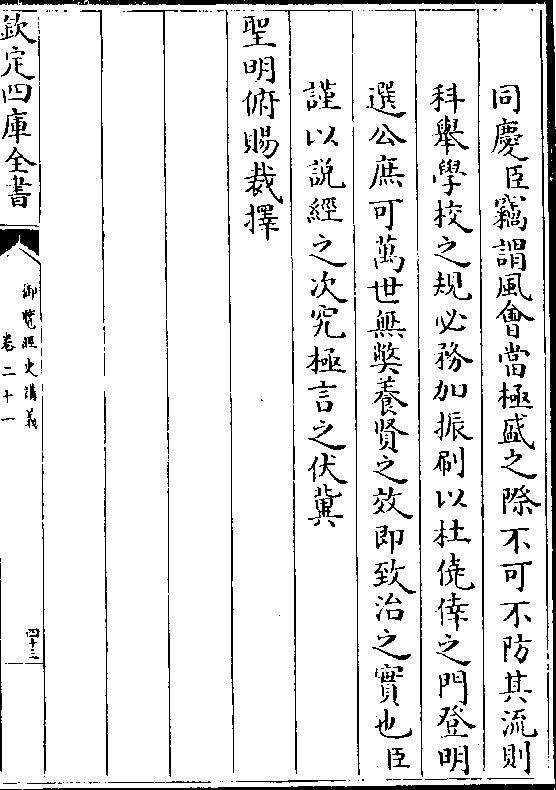 同慶臣竊謂風會當極盛之際不可不防其流則
科舉學校之規必務加振刷以杜僥倖之門登明
選公庶可萬世無獘養賢之效即致治之實也臣
謹以說經之次究極言之伏冀
聖明俯賜裁擇
欽定四庫全書
御覽經史講義
卷二十一
四十三